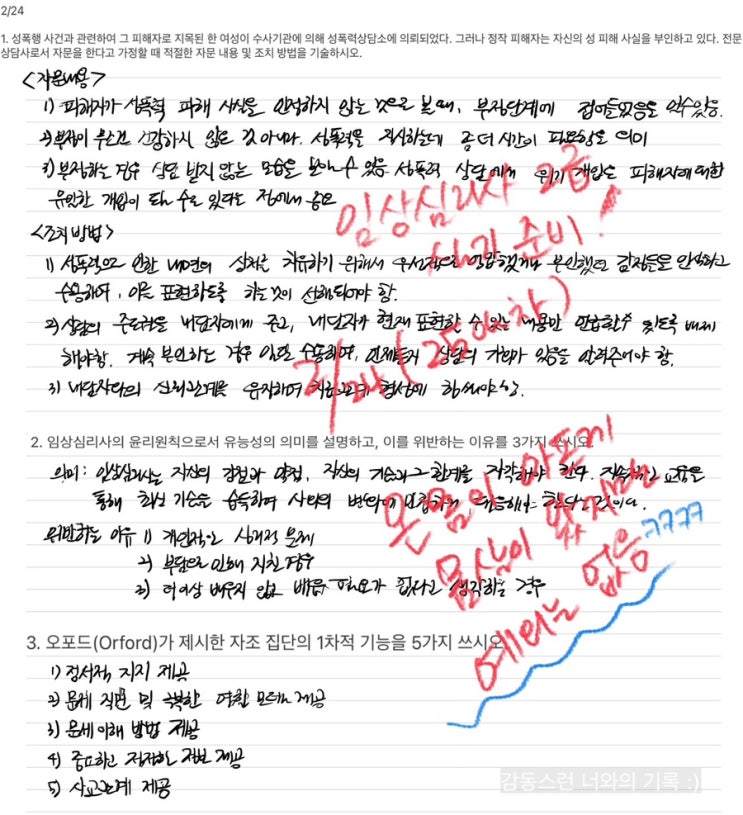 2/24
1. 성폭행 사건과 관련하여 그 피해자로 지목된 한 여성이 수사기관에 의해 성폭력상담소에 의뢰되었다. 그러나 정작 피해자는 자신의 성 피해 사실을 부인하고 있다. 전문
상담사로서 자문을 한다고 가정할 때 적절한 자문 내용 및 조치 방법을 기술하시오.
<자문내용>
1) 피해자가 성폭력 피해 사실을 인정하지 않는 것으로 볼 때, 부정단계에 접어들었음을 알 수 있음.
2) 부정이 무조건 건강하지 않은 것 아니다. 성폭력을 직시하는데 좀 더 시간이 필요함을 의미
3) 부정하는 경우 상담 받지 않는 모습을 보일 수 있음 성폭력 상담에서 위기 개입은 피해자에 대한
유일한 개입이 될 수도 있다는 점에서 중요
임상심리사 2급
실기 준비!
<조치방법>
1) 성폭력으로 인한 내면의 상처를 치유하기 위해서 우선적으로 부인했던 감정들을 인식하고
수용하여, 이를 표현하도록 하는 것이 선행되어야 함.
2) 상담의 주도권을 내담자에게 주고, 내담자가 현재 표현할 수 있는 내용만 언급할 수 있도록 배제
해야함. 계속 부인하는 경우 일단 수용하며, 언제든지 상담의 기회가 있음을 알려주어야 함.
2/24 (25일차)
3) 내담자와의 신뢰관계를 유지하며 치료관계 형성에 힘써야 함.
2. 임상심리사의 윤리원칙으로서 유능성의 의미를 설명하고, 이를 위반하는 이유를 3가지 쓰시오.
의미: 임상심리사는 자신의 강점과 약점, 자신의 기술과 그 한계를 자각해야 한다. 지속적인 교육을
통해 최신 기술을 습득하여 사회의 변화에 민감하게 대응해야 한다는 것이다.
온 몸이 아픈게
몸살이 왔지만
예외는 없음 ㅋㅋㅋㅋ
위반하는 이유 1) 개인적인 심리적 문제
2) 부담으로 인해 지친 경우
3) 더 이상 배우지 않고 배울 필요가 없다고 생각하는 경우
3. 오포드(Orford)가 제시한 자조 집단의 1차적 기능을 5가지 쓰시오.
1) 정서적 지지 제공
2) 문제 직면 및 극복한 역할 모델 제공
3) 문제 이해 방법 제공
4) 중요하고 적절한 정보 제공
5) 사교관계 제공
감동스런 너와의 기록 :)